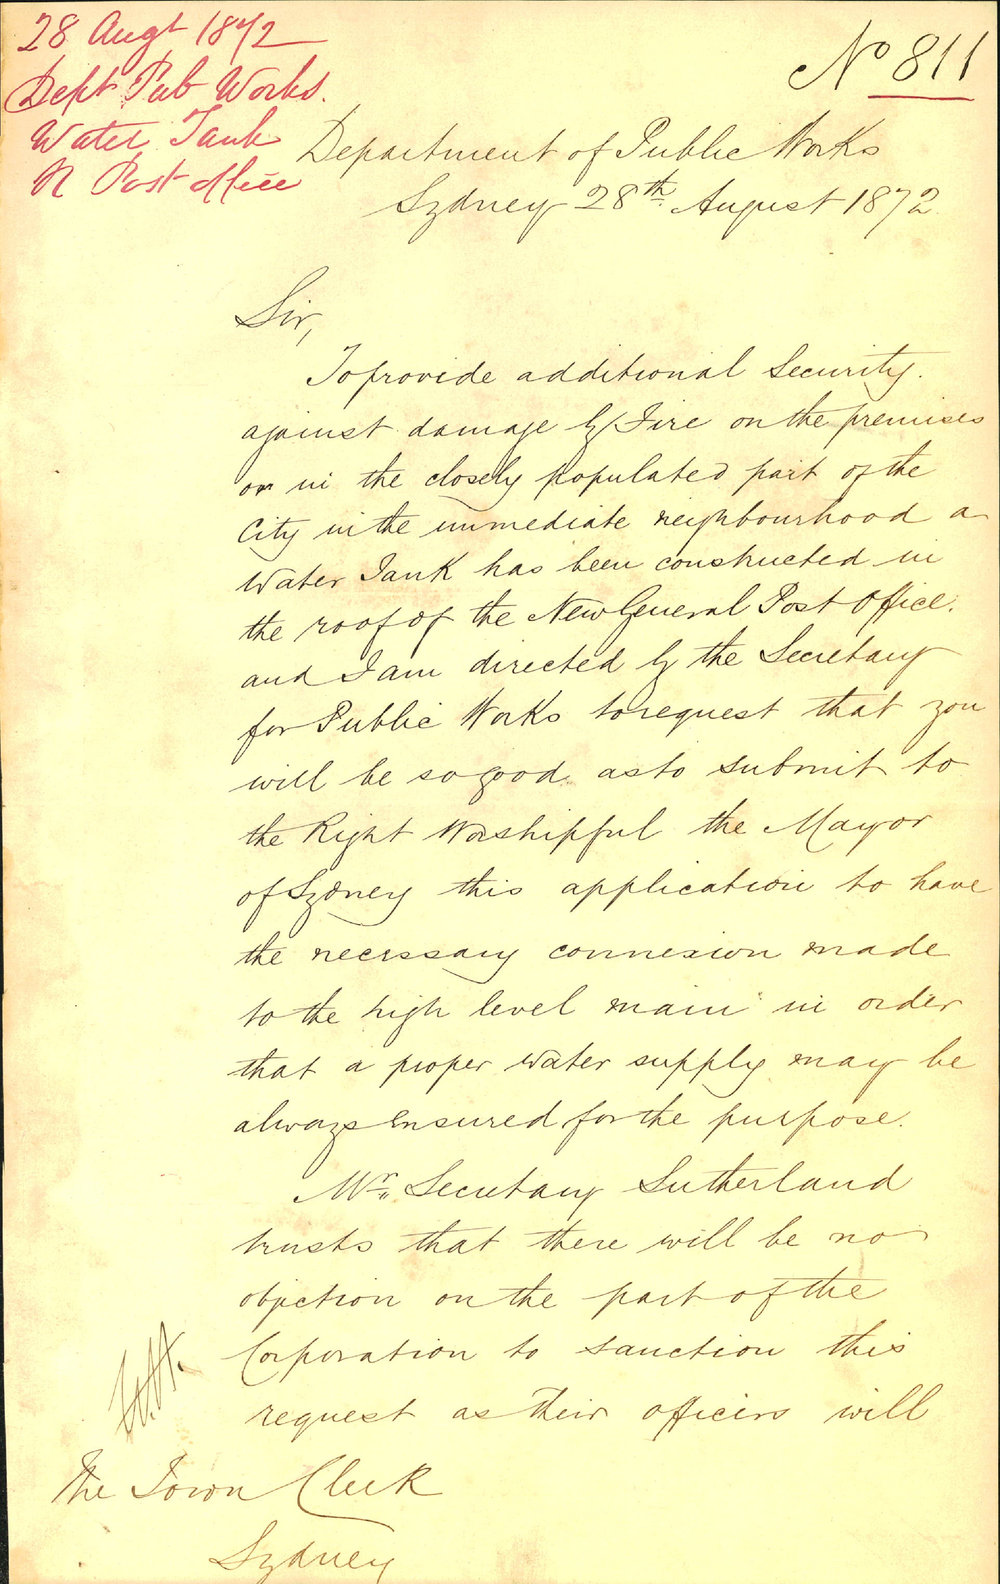 28 Augt 1872
Dept Pub Works.
Water Tank
N Post office
No 811
Department of Public Works
Sydney 28th August 1872
Sir,
To provide additional Security
against damage by Fire on the premises
or in the closely populated part of the
City in the immediate neighbourhood a
Water Tank has been constructed in
the roof of the New General Post Office.
and I am directed by the Secretary
for Public Works to request that you
will be so good as to submit to
the Right Worshipful the Mayor
of Sydney this application to have
the necessary connexion made
to the high level main in order
that a proper water supply may be
always ensured for the purpose.
Mr. Secretary Sutherland
trusts that there will be no
objection on the part of the
Corporation to sanction this
request as their officers will
The Town Clerk
Sydney